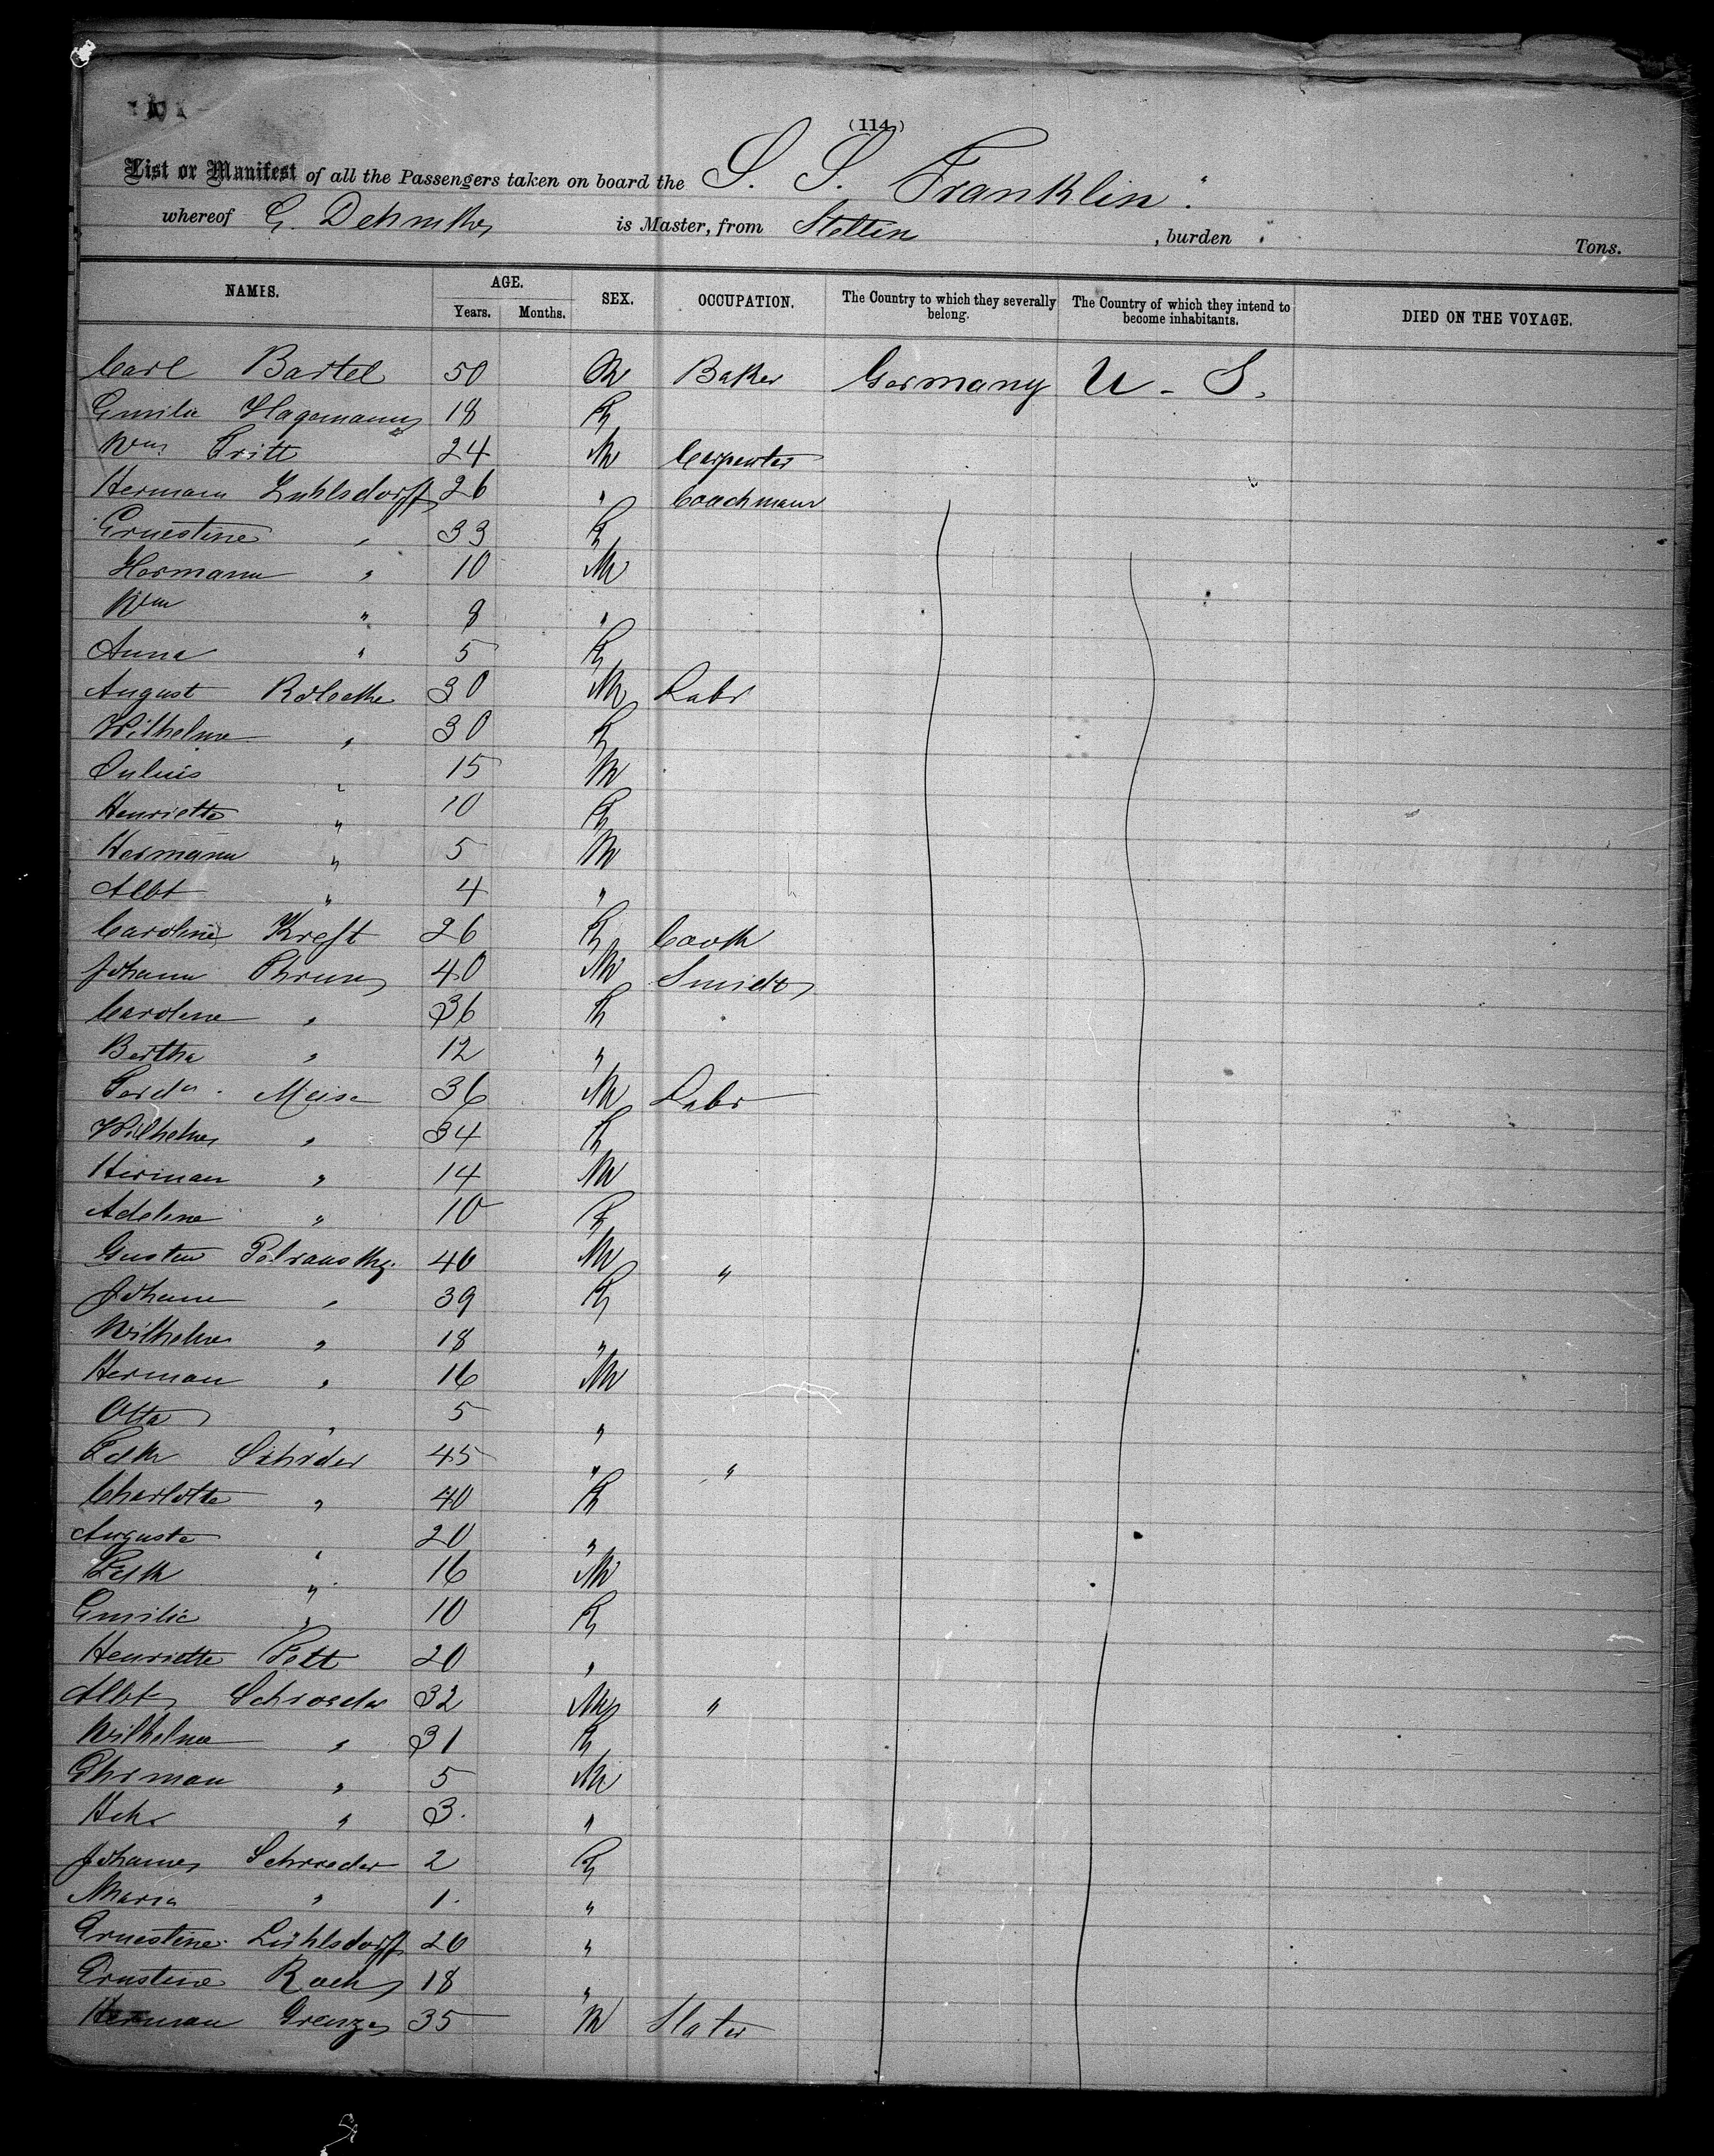 (114)
List or Manifest of all the Passengers taken on board the S. S. Franklin.
whereof G. is Master, from Stettin , burden Tons.
NAMES. AGE. SEX. OCCUPATION. The Country to which they severally belong. The Country of which they intend to become inhabitants. DIED ON THE VOYAGE.
Years. Months.
Carl Bartel 50 M Baker Germany U. S.
Emilie Hagemann 18 F
Wm Tritt 24 M Carpenter
Hermann Luhlsdorff 26 " Coachman
Ernestine " 33 F
Hermann " 10 M
Wm " 9 "
Anna " 5 F
August 30 M Labr
Wilhelme " 30 F
Julius " 15 M
Henriette " 10 F
Hermann " 5 M
Albt " 4 "
Caroline Kreft 26 F Cook
Johann 40 M
Caroline " 36 F
Bertha " 12 "
Ferdn. Meise 36 M Labr
Wilhelme " 34 F
Herman " 14 M
Adeline " 10 F
Gustav 40 M "
Johanne " 39 F
Wilhelme " 18 "
Herman " 16 M
Otto " 5 "
Fdk Schrder 45 " "
Charlotte " 40 F
Auguste " 20 "
Fdk " 16 M
Emilie " 10 F
Henriette Pett 20 "
Albt Schroeder 32 M "
Wilhelme " 31 F
" 5 M
" 3. "
Johannes Schroeder 2 F
Maria " 1. "
Ernestine Lühlsdorff 20 "
Ernstine 18 "
Herman Grenze 35 M Slater